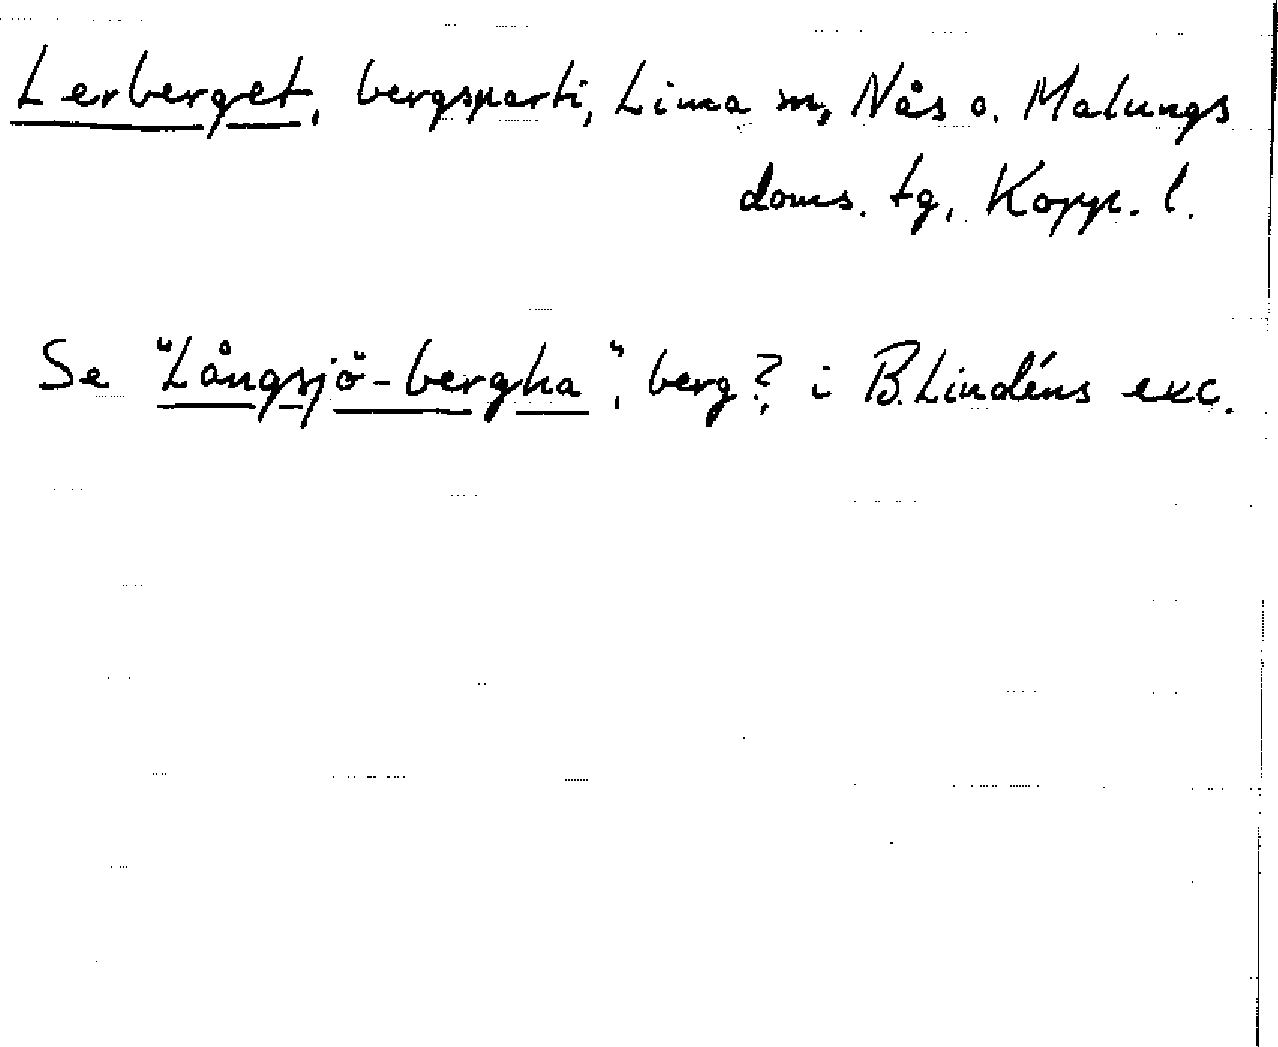 Lerberget, bergsparti, Lima sn, Nås o. Malungs
doms. tg, Kopp. l.
Se "Långsjö-bergha", berg? i B. Lindéns exc.